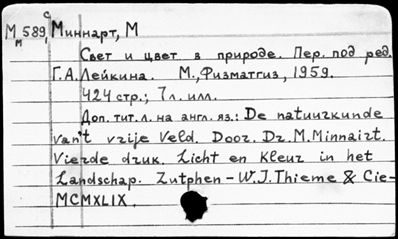 М 589 С
м
Миннарт, М
Свет и цвет в природе. Пер. под ред.
Г.А.Лейкина. М., Физматгиз, 1959.
424 стр.; 7л. илл.
Доп. тит. л. на англ. яз.: De natuurkunde
van't vrije Veld. Door. Dr. M. Minnairt.
Vierde druk. Licht en kleur in het
Landschap. Zutphen - W.J. Thieme & Cie-
MCMXLIX.